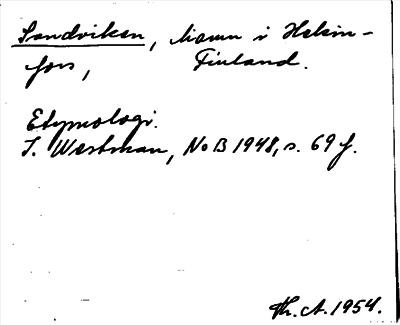 Sandviken, hamn i Helsin-
fors, Finland.
Etymologi.
I. Westman, NoB 1948, s. 69 f.
Th. A. 1954.